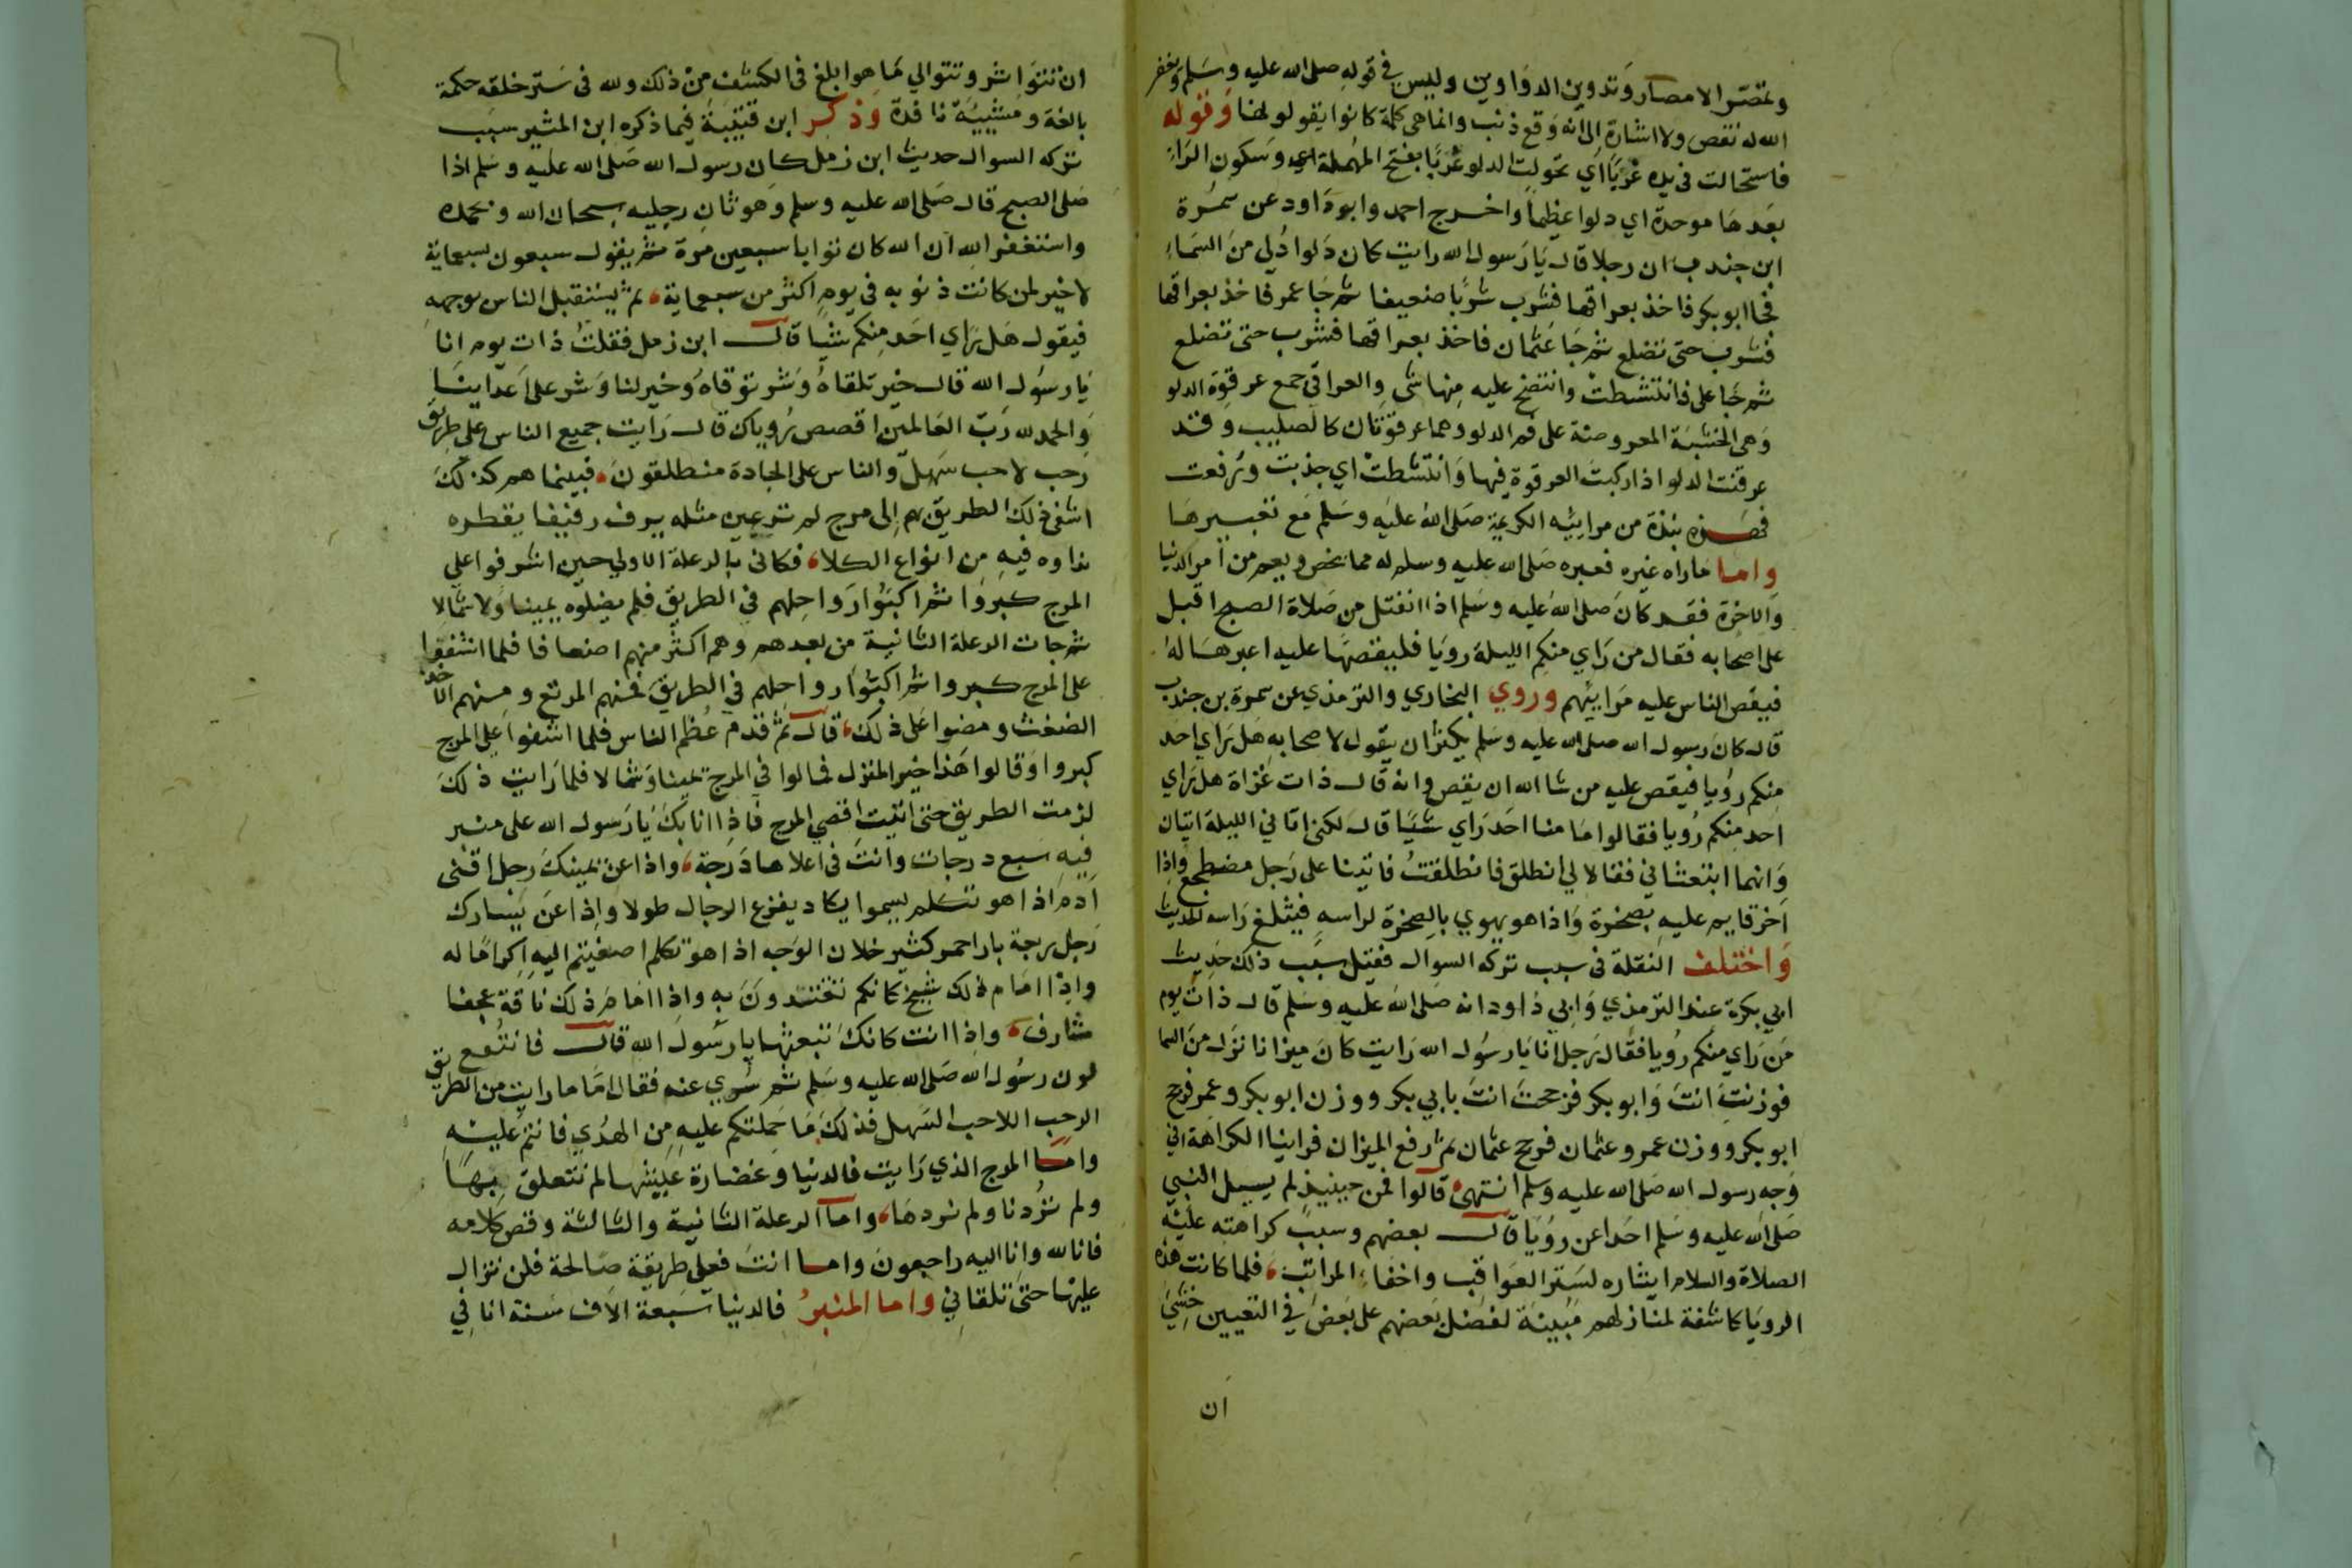 وتمصّر الامصار وَتدوين الدوَاوين وليس في قوله صلى الله عليه وسَلم وَيغفر
الله له نقص ولا اشارة إلى انه وَقع ذنب وانما هى كلمة كانوا يقولونها وَقوله
فاستحالت فى يده غَرْبًا اي تحولت الدلو غَرْبًا بفتح المهملة اي وسَكون الرَاءِ
بَعدهَا موحدة اي دلوا عَظيماً واخرج احمد وابودَاود عن سمُرة
ابن جندب ان رجلا قال يَا رَسول الله رايت كان دَلوا دُلي منَ السَماءِ
فجا ابو بكر فاخذ بعراقها فشرب شربًا ضعيفا ثم جَا عمر فاخذ بعراقها
فشربَ حتى تضلع ثم جَا عثمان فاخذ بعراقها فشرب حتى تضلع
ثم جَا على فانتشطت وانتضخ عليه منها شي والعراقي جمع عرقوة الدلو
وَهى الخشبَة المعروضة على فم الدلو وهما عرقوتان كالصليب وقد
عرقت الدلو اذا ركبتَ العرقوة فيها وَانتشطتْ اي جذبت ورُفعت
فهَذه نبذة من مرايئه الكريمة صَلى اللهُ عليَه وسَلم مَع تعبيرهَا
واما ماراه غيره فعبره صَلى الله عليه وسلم له مما يخص ويعم من امر الدنيا
وَالاخرة فقد كانَ صَلى اللهُ عليه وسَلم اذا انفتل من صَلاة الصبح اقبل
على اصحابه فقال من رَاي منكم الليلة رويَا فليقصهَا عليه اعبرهَا لهُ
فيقص الناس عليه مَرايئهم وروي البخاري والترمذي عن سمرة بن جندب
قال كانَ رسول الله صلى الله عليه وسَلم يكثر ان يقول لاصحابه هَل رَاي احَد
منكم رُويا فيقص عليه من شا الله ان يقص وانه قال ذات غَزاة هل رَاي
احد منكم رُويا فقالوا مَا منا احَد رَاي شيًا قال لكنى اتاني الليلة اتيان
وَانهما ابتعثاني فقالا لي انطلق فانطلقتُ فاتينا على رَجل مضطجع واذا
اخر قايم عليهِ بصَخرة وَاذا هو يهوي بالصخرة لراسهِ فيثلغ رَاسه الحديث
وَاختلف النقلة فى سبب تركه السوال فقيل سبَب ذلك حَديث
ابي بكرة عند الترمذي وَابي دَاود انه صَلى الله عليه وسَلم قال ذاتَ يوم
مَن رَاي منكم رُويا فقال رَجل انا يَا رسُول الله رَايت كانَ ميزانا نزل منَ السما
فوزنتَ انتَ وَابوبكر فرجحتَ انتَ بابي بكر ووزن ابوبكر وعمر فرجح
ابوبكر ووزن عمر وعثمان فرجح عثمان ثم رفع الميزان فراينا الكراهة في
وَجهِ رسول الله صَلى الله عليه وسَلم انتهى قالوا فمن حينيذٍ لم يسيل النبي
صَلى الله عليه وسَلم احَدا عن رويَا قال بعضهم وسببَ كراهته عليه
الصلاة والسلام ايثاره لسَتر العَواقب واخفاء المراتب، فلما كانت هذه
الرويَا كاشفة لمنازلهم مُبينة لفضل بَعضهم على بَعض في التعيين خَشيَ
ان
ان تتوَاتر وتتوالي مَا هوا بلغ فى الكشف منْ ذلك ولله فى سَتر خلقه حكمة
بالغة ومَشيَّة نافدة وَذكر ابن قتيبَة فيما ذكره ابن المنير سبَب
تركه السوال حديث ابن زمل كان رسول الله صَلى الله عليه وسَلم اذا
صَلى الصبح قال صَلى الله عليه وسلم وَهو ثانِ رجليه سبحان الله وبحمده
واستغفر الله ان الله كان توابا سبعين مرة ثم يقول سبعون بسبعماية
لاخير لمن كانت ذنوبه في يوم اكثر من سبعماية، ثم يستقبل الناس بوجهه
فيقول هَل رَاي احَد مِنكم شيا قال ابن زمل فقلتُ ذات يوم انا
يَا رسُول الله قال خير تلقاهُ وَشر توقاهُ وَخير لنا وَشر على اَعدَاينَا
وَالحمد لله رَبّ العَالمين اقصص رُوياك قال رَايت جميع الناس على طريق
رَحب لاحب سَهِل والناس على الجادة منطلقونَ، فبينما هم كذلكَ
اشفى ذلك الطريق بهم إلى مرج لم تر عينى مثله يرف رفيفا يقطر
نداوه فيهِ من انواع الكلاء، فكانى بالرعلة الاولى حين اشرفوا على
المرج كبروا ثم اكبّوا رَواحلهم في الطريق فلم يضلوه يمينا وَلا شمالا
ثم جات الرعلة الثانية من بعدهم وهم اكثر منهم اضعافا فلما اشفوا
على المرج كبروا ثم اكبّوا رواحلهم في الطريق فمنهم المرتع ومنهم الاخذ
الضغث ومضوا عَلى ذلك، قال ثم قدم عُظم الناس فلما اشفوا على المرج
كبروا وَقالوا هَذا خير المنزل فمالوا في المرج يمينا وَشمالا فلما رَايت ذلكَ
لزمت الطريق حتى اتيت اقصى المرج فَاذا انا بكَ يَا رَسول الله على منبر
فيهِ سَبع درجات وانتَ فى اعلاها دَرجة، واذا عن يمينكَ رَجل اقنى
اَدم اذا هو تكلم يسموا يكاد يفرع الرجال طولا وإذا عن يَسارك
رَجل ربعة تار احمر كثير خيلان الوَجه اذا هو تكلم اصغيتم اليهِ إكرامًا له
واذا امَام ذلك شيخ كانكم تقتدونَ به واذا امَامَ ذلك ناقة عجفا
شارف، واذا انت كانكَ تبعثها يا رسُول الله قال فانتقع
لون رسُول الله صَلى الله عليه وسَلم ثم سُري عنه فقال امَا ما رايت من الطريق
الرحب اللاحب السَهل فذلكَ مَا حَمَلتكم عليهِ مِن الهدُي فانتم عليه
وامَا المرج الذي رَايت فالدنيا وَغضارة عيشها لم نتعلق بهَا
ولم تُردنا ولم نردهَا، واما الرعلة الثانية والثالثة وقص كلامه
فانا لله وانا اليه راجعونَ واما انتَ فعلى طريقة صَالحة فلن تزال
عليهَا حتى تلقاني واما المنبرُ فالدنيا سَبعة الاف سَنة انا في